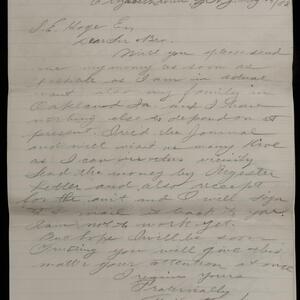 S. E. Hoge Esq,
Dear Sir & Bro.
Will you please send
me my money as soon as
possible as I am in actual
want also my family in
Oakland Ia. and I have
nothing else to depend on at
present. Rec'd the Journal
and will visit as many
as I can over this vicinity
Send the money by Register
Letter and also receipt
for the am't and I will sign
it & mail it back to you.
I am not to work yet.
But hope I will be soon.
Trusting you will give this
matter your attention at once
I remain Yours
Fraternally